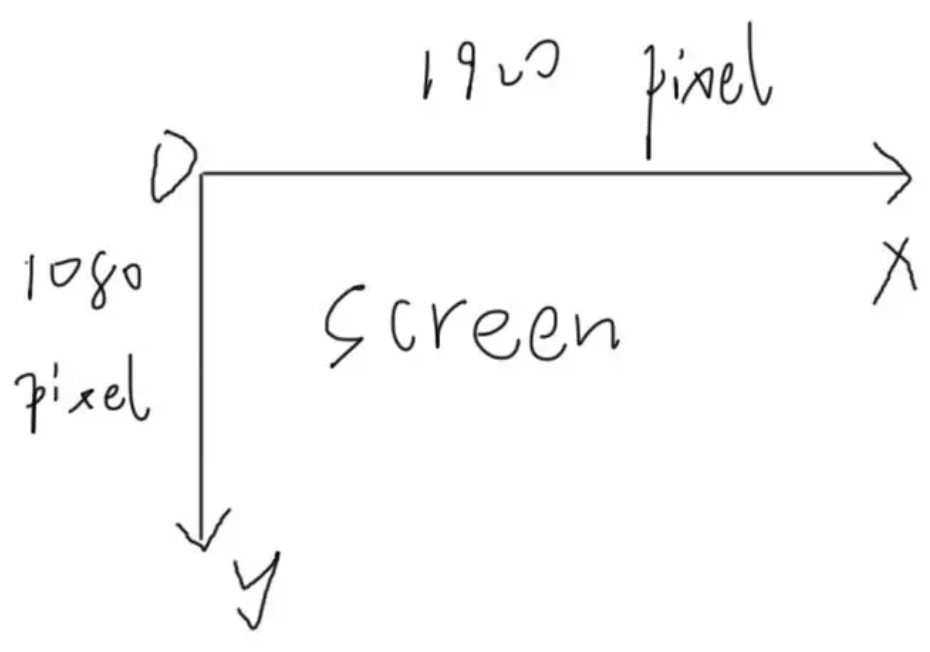 1900 pixel
0
1080
pixel
X
Screen
y